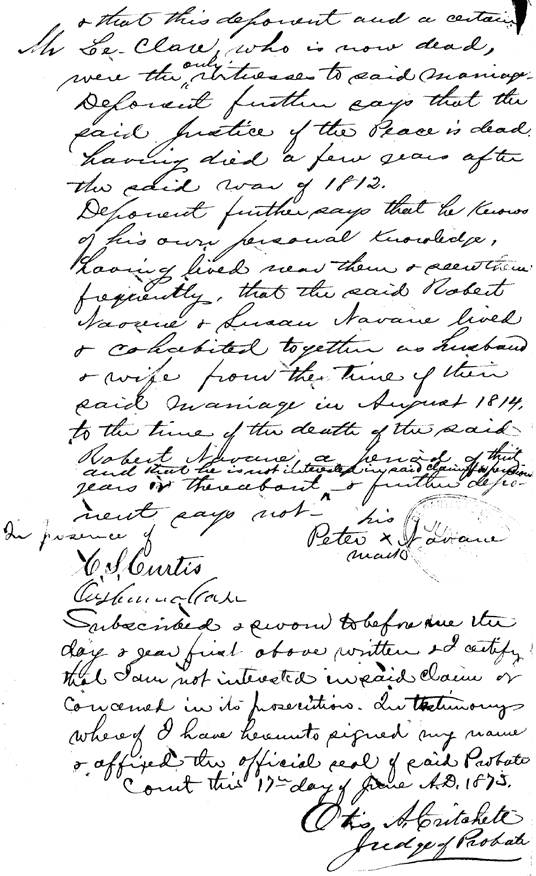 & that this deponent and a certain
Mr Le-Clare, who is now dead,
were the only witnesses to said marriage.
Deponent further says that the
said Justice of the Peace is dead
having died a few years after
the said war of 1812.
Deponent further says that he knows
of his own personal knowledge,
having lived near them & seen them
frequently, that the said Robert
Navane & Susan Navane lived
& cohabited together as husband
& wife from the time of their
said marriage in August 1814,
to the time of the death of the said
Robert Navane a period of
and that he is not interested in said claim for pension
years or thereabout & further depo-
nent says not-
In presence of
his
Peter X Navane
mark
C. S. Curtis
Subscribed & sworn to before me the
day & year first above written & I certify
that I am not interested in said claim or
concerned in its prosecution. In testimony
whereof I have hereunto signed my name
& affixed the official seal of said Probate
Court this 17th day of June A.D. 1873.
Otis A. Critchett
Judge of Probate